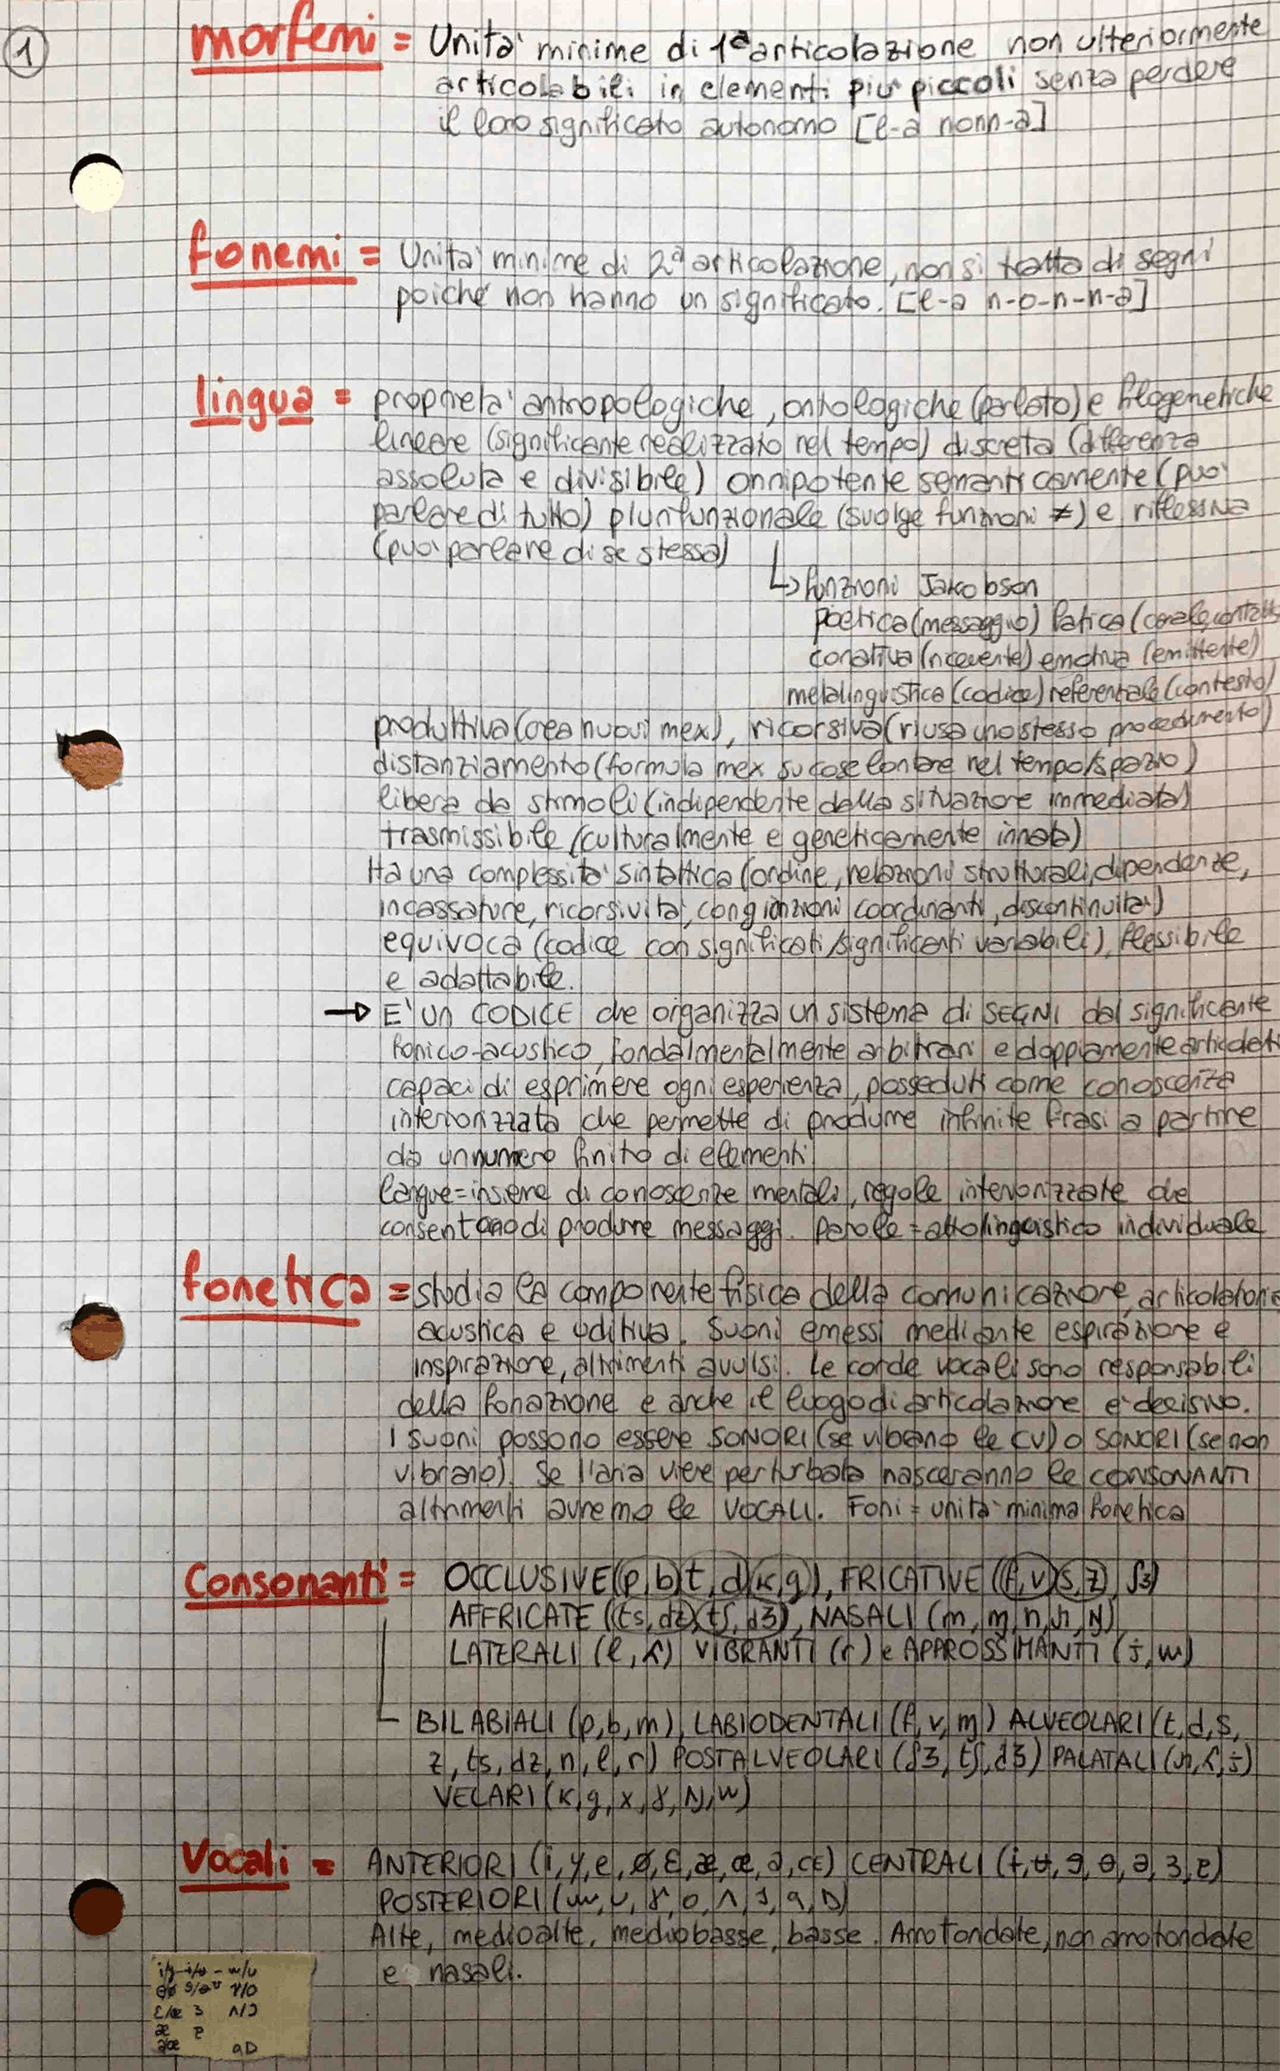 1
morfemi = Unità minime di 1ª articolazione non ulteriormente
articolabili in elementi più piccoli senza perdere
il loro significato autonomo [l-a nonn-a]
fonemi = Unità minime di 2ª articolazione, non si tratta di segni
poiché non hanno un significato. [l-a n-o-n-n-a]
lingua = proprietà antropologiche, ontologiche (parlato) e filogenetiche
lineare (significante realizzato nel tempo) discreta (differenza
assoluta e divisibile) onnipotente semanticamente (può
parlare di tutto) plurifunzionale (svolge funzioni ≠) e riflessiva
(può parlare di se stessa)
↳ funzioni Jakobson
poetica (messaggio) fatica (canale, contatto
conativa (ricevente) emotiva (emittente)
metalinguistica (codice) referenziale (contesto)
produttiva (crea nuovi mex), ricorsiva (riusa uno stesso procedimento)
distanziamento (formula mex su cose lontane nel tempo/spazio)
libera da stimoli (indipendente dalla situazione immediata)
trasmissibile (culturalmente e geneticamente innata)
Ha una complessità sintattica (ordine, relazioni strutturali, dipendenze,
incassature, ricorsività, congiunzioni coordinanti, discontinuità)
equivoca (codice con significati/significanti variabili), flessibile
e adattabile.
→ E' UN CODICE che organizza un sistema di SEGNI dal significante
fonico-acustico, fondalmentalmente arbitrari e doppiamente articolati
capaci di esprimere ogni esperienza, posseduti come conoscenza
interiorizzata che permette di produrre infinite frasi a partire
da un numero finito di elementi
langue = insieme di conoscenze mentali, regole interiorizzate che
consentono di produrre messaggi. parole = atto linguistico individuale
fonetica = studia la componente fisica della comunicazione, articolatoria
acustica e uditiva. Suoni emessi mediante espirazione e
inspirazione, altrimenti avulsi. Le corde vocali sono responsabili
della fonazione e anche il luogo di articolazione è decisivo.
I suoni possono essere SONORI (se vibrano le CV) o SONORI (se non
vibrano). Se l'aria viene perturbata nasceranno le CONSONANTI
altrimenti avremo le VOCALI. Foni = unità minima fonetica
Consonanti = OCCLUSIVE ((p,b)(t,d)(k,g)), FRICATIVE ((f,v)(s,z) ʃʒ)
AFFRICATE ((ts,dz)(tʃ,dʒ)), NASALI (m, ɱ, n, ɲ, ŋ)
LATERALI (l, ʎ) VIBRANTI (r) e APPROSSIMANTI (j, w)
BILABIALI (p,b,m), LABIODENTALI (f,v,ɱ) ALVEOLARI (t,d,s,
z, ts, dz, n, l, r) POSTALVEOLARI (ʃʒ, tʃ, dʒ) PALATALI (ɲ, ʎ, j)
VELARI (k, g, x, ɣ, ŋ, w)
Vocali = ANTERIORI (i, y, e, ø, ɛ, æ, œ, a, ɶ) CENTRALI (ɨ, ʉ, ɘ, ɵ, ə, ɜ, ɐ)
POSTERIORI (ɯ, u, ɤ, o, ʌ, ɔ, ɑ, ɒ)
Alte, medioalte, mediobasse, basse. Arrotondate, non arrotondate
e nasali.
i/y ɨ/ʉ - ɯ/u
ɛ/œ ɜ ʌ/ɔ
æ ɐ
ɑɒ